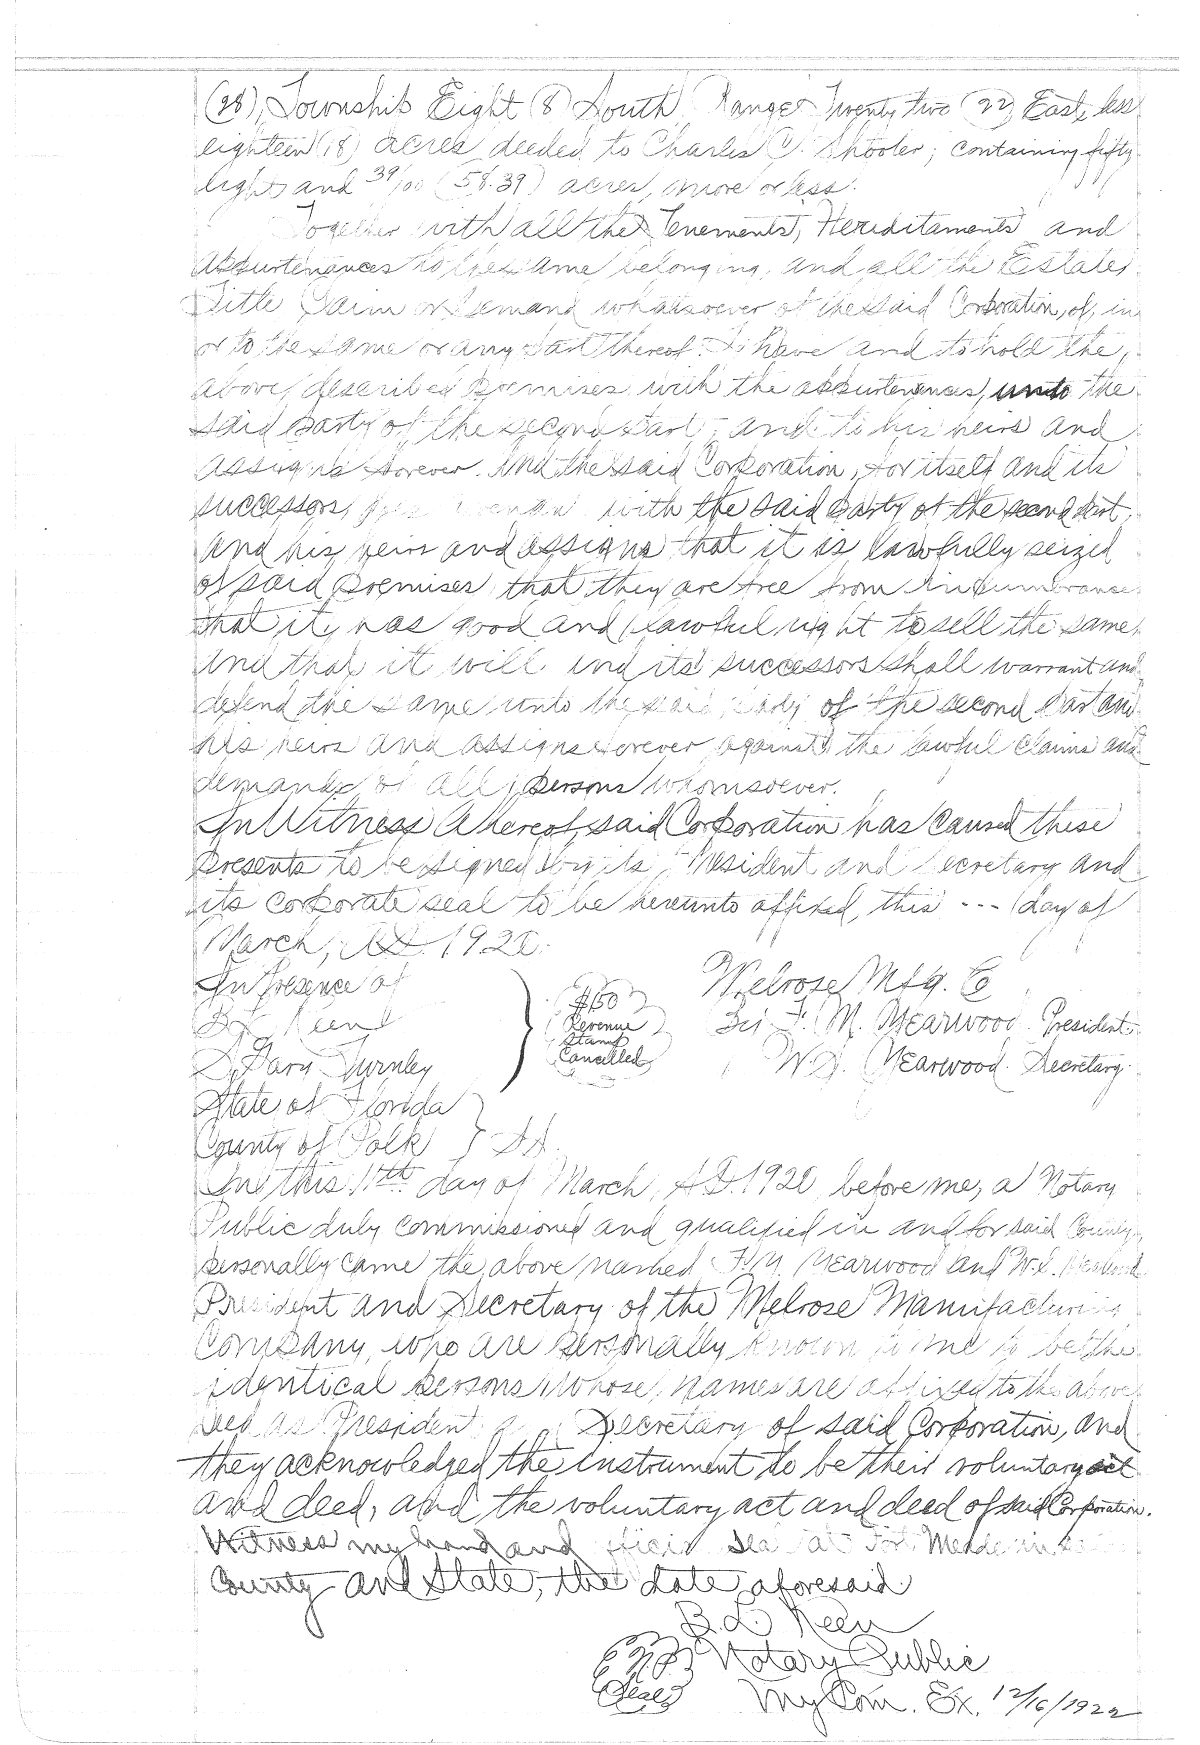 (28), Township Eight (8) South Range Twenty two (22) East, less
eighteen (18) acres deeded to Charles C. Shooter; containing fifty
eight and 39/100 (58.39) acres, more or less.
Together with all the Tenements, Hereditaments and
appurtenances to the same belonging, and all the Estate,
Title Claim or Demand whatsoever of the said Corporation, of, in
or to the same or any part thereof. To have and to hold the
above described premises with the appurtenances, unto the
said party of the second part, and to his heirs and
assigns forever. And the said Corporation, for itself and its
successors, with the said party of the second part,
and his heirs and assigns that it is lawfully seized
of said premises that they are free from incumbrances
that it has good and lawful right to sell the same,
and that it will and its successors shall warrant and
defend the same unto the said party of the second part and
his heirs and assigns forever against the lawful claims and
demands of all persons whomsoever.
In Witness Whereof, said Corporation has caused these
presents to be signed by its President and Secretary and
its corporate seal to be hereunto affixed, this --- day of
March, A.D. 1920.
In Presence of
B L Keen
S. Gary Turnley
$1.50
Revenue
Stamp
Cancelled
Melrose Mfg. Co
By F. M. Yearwood President
W.S. Yearwood. Secretary.
State of Florida
County of Polk } S.S.
On this 11th day of March, A.D. 1920, before me, a Notary
Public duly commissioned and qualified in and for said County,
personally came the above named F.M. Yearwood and W.S. Yearwood
President and Secretary of the Melrose Manufacturing
Company, who are personally known to me to be the
identical persons whose names are affixed to the above
Deed as President and Secretary of said Corporation, and
they acknowledged the instrument to be their voluntary act
and deed, and the voluntary act and deed of said Corporation.
Witness my hand and official seal at Fort Meade in said
County and State, the date aforesaid
B. L. Keen
(N.P. Seal) Notary Public
My Com. Ex. 12/16/1922